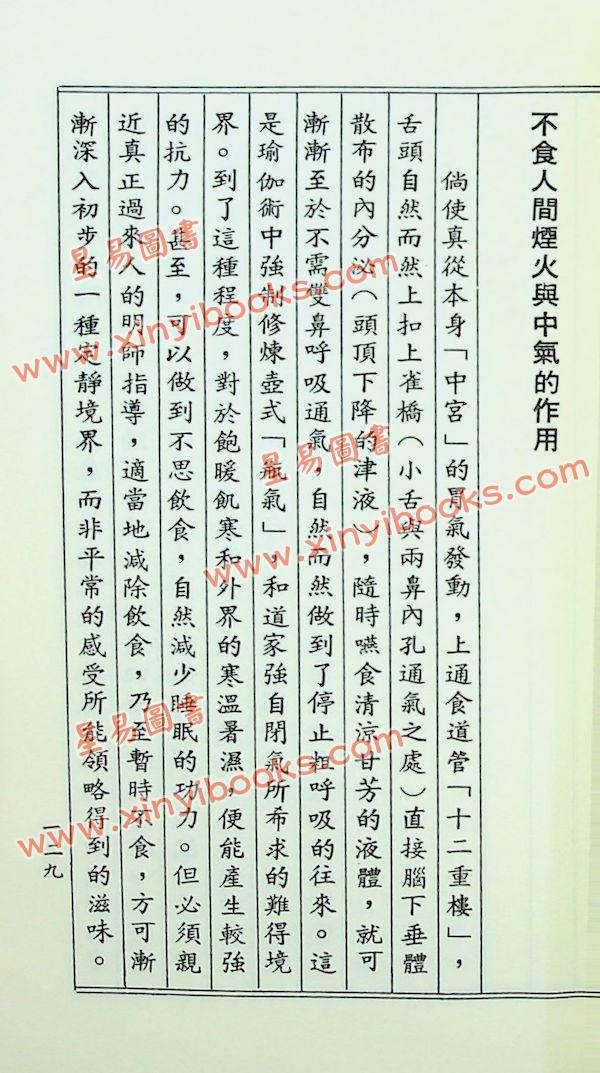 不食人間煙火與中氣的作用
倘使真從本身「中宮」的胃氣發動，上通食道管「十二重樓」，
舌頭自然而然上扣上雀橋（小舌與兩鼻內孔通氣之處）直接腦下垂體
散布的內分泌（頭頂下降的津液），隨時嚥食清涼甘芳的液體，就可
漸漸至於不需雙鼻呼吸通氣，自然而然做到了停止粗呼吸的往來。這
是瑜伽術中強制修煉壺式「瓶氣」，和道家強自閉氣所希求的難得境
界。到了這種程度，對於飽暖飢寒和外界的寒溫暑濕，便能產生較強
的抗力。甚至，可以做到不思飲食，自然減少睡眠的功力。但必須親
近真正過來人的明師指導，適當地減除飲食，乃至暫時不食，方可漸
漸深入初步的一種定靜境界，而非平常的感受所能領略得到的滋味。
一二九
星易圖書
www.xinyibooks.com
星易圖書
www.xinyibooks.com
星易圖書
www.xinyibooks.com